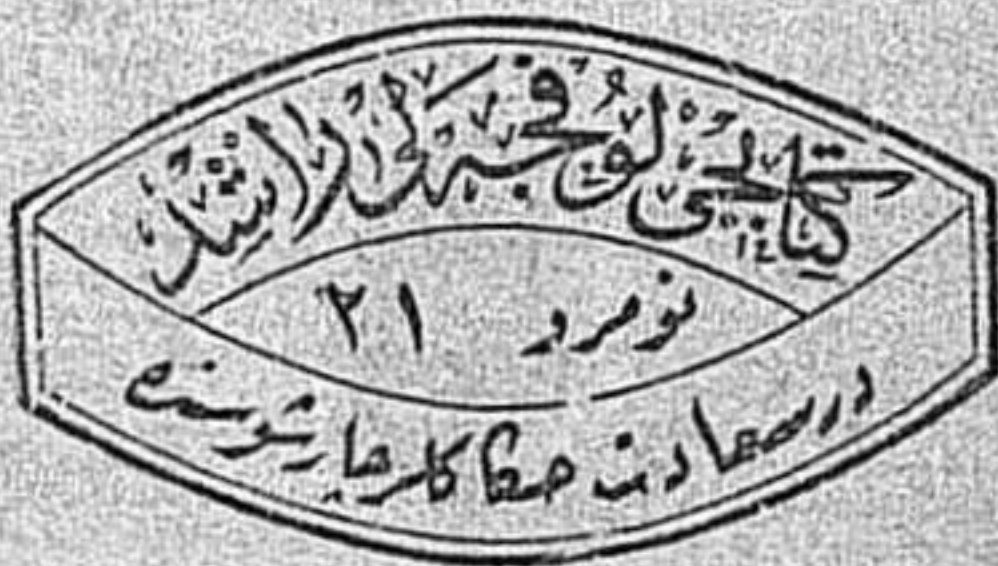 كتابجى لوفجه لى راشد
نومرو ٢١
درسعادت حكاكلر چارشوسنده